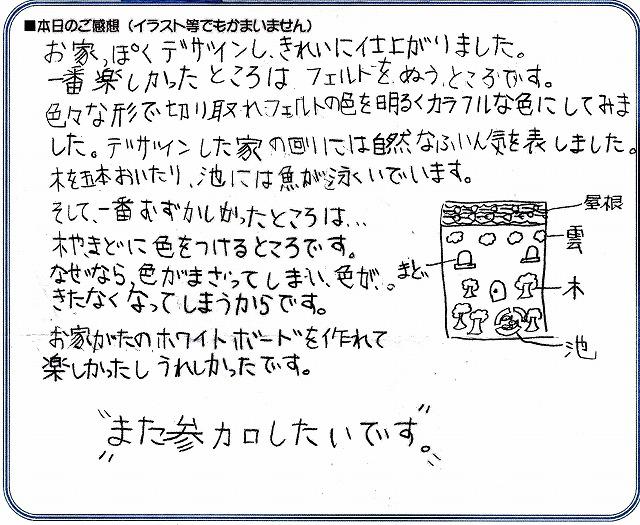 ■本日のご感想（イラスト等でもかまいません）
お家っぽくデザインし、きれいに仕上がりました。
一番楽しかったところはフェルトをぬうところです。
色々な形で切り取れフェルトの色を明るくカラフルな色にしてみま
した。デザインした家の回りには自然なふいん気を表しました。
木を五本おいたり、池には魚が泳いでいます。
そして、一番むずかしかったところは…
木やまどに色をつけるところです。
なぜなら、色がまざってしまい、色が
きたなくなってしまうからです。
お家がたのホワイトボードを作れて
楽しかったしうれしかったです。
屋根
雲
まど
木
池
"また参加したいです。"